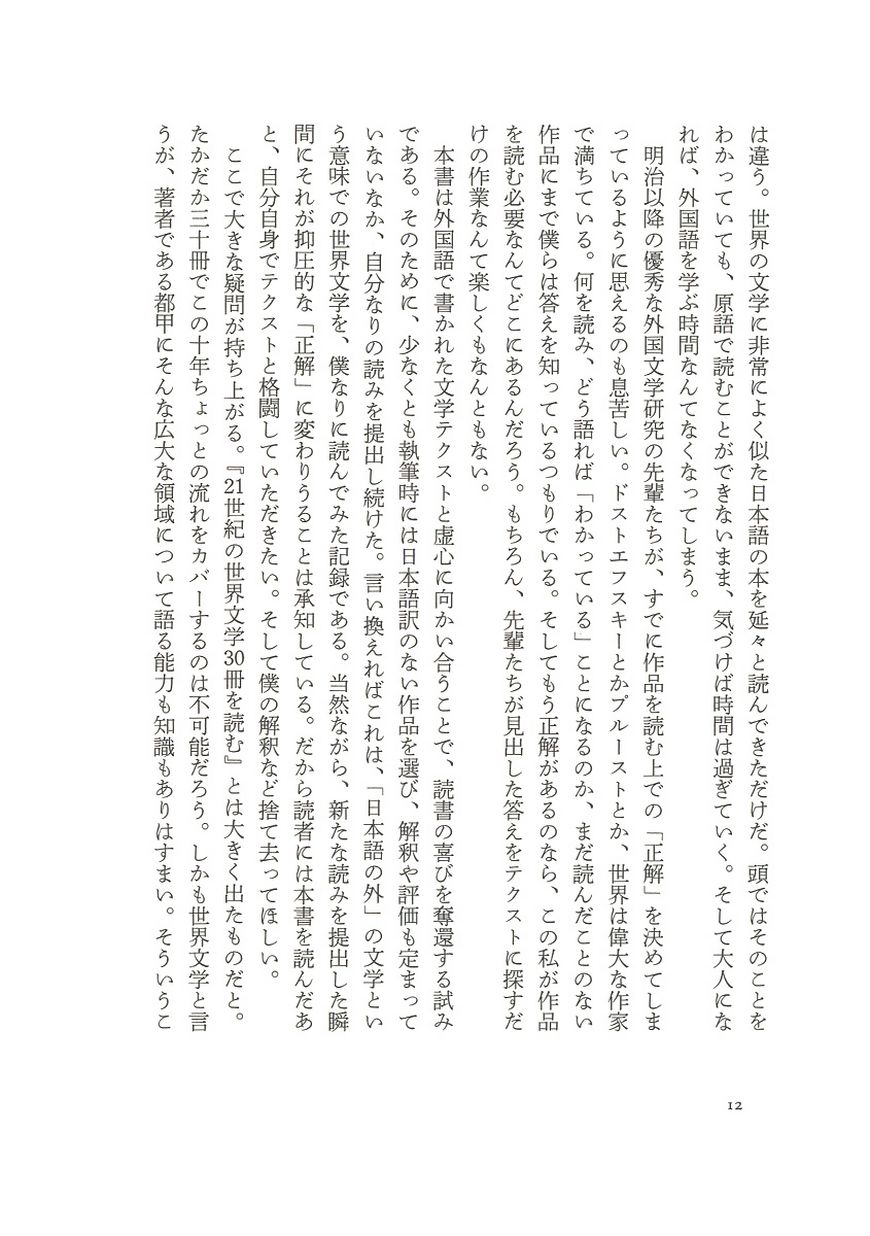 は違う。世界の文学に非常によく似た日本語の本を延々と読んできただけだ。頭ではそのことを
わかっていても、原語で読むことができないまま、気づけば時間は過ぎていく。そして大人にな
れば、外国語を学ぶ時間なんてなくなってしまう。
明治以降の優秀な外国文学研究の先輩たちが、すでに作品を読む上での「正解」を決めてしま
っているように思えるのも息苦しい。ドストエフスキーとかプルーストとか、世界は偉大な作家
で満ちている。何を読み、どう語れば「わかっている」ことになるのか、まだ読んだことのない
作品にまで僕らは答えを知っているつもりでいる。そしてもう正解があるのなら、この私が作品
を読む必要なんてどこにあるんだろう。もちろん、先輩たちが見出した答えをテクストに探すだ
けの作業なんて楽しくもなんともない。
本書は外国語で書かれた文学テクストと虚心に向かい合うことで、読書の喜びを奪還する試み
である。そのために、少なくとも執筆時には日本語訳のない作品を選び、解釈や評価も定まって
いないなか、自分なりの読みを提出し続けた。言い換えればこれは、「日本語の外」の文学とい
う意味での世界文学を、僕なりに読んでみた記録である。当然ながら、新たな読みを提出した瞬
間にそれが抑圧的な「正解」に変わりうることは承知している。だから読者には本書を読んだあ
と、自分自身でテクストと格闘していただきたい。そして僕の解釈など捨て去ってほしい。
ここで大きな疑問が持ち上がる。『21世紀の世界文学30冊を読む』とは大きく出たものだと。
たかだか三十冊でこの十年ちょっとの流れをカバーするのは不可能だろう。しかも世界文学と言
うが、著者である都甲にそんな広大な領域について語る能力も知識もありはすまい。そういうこ
12